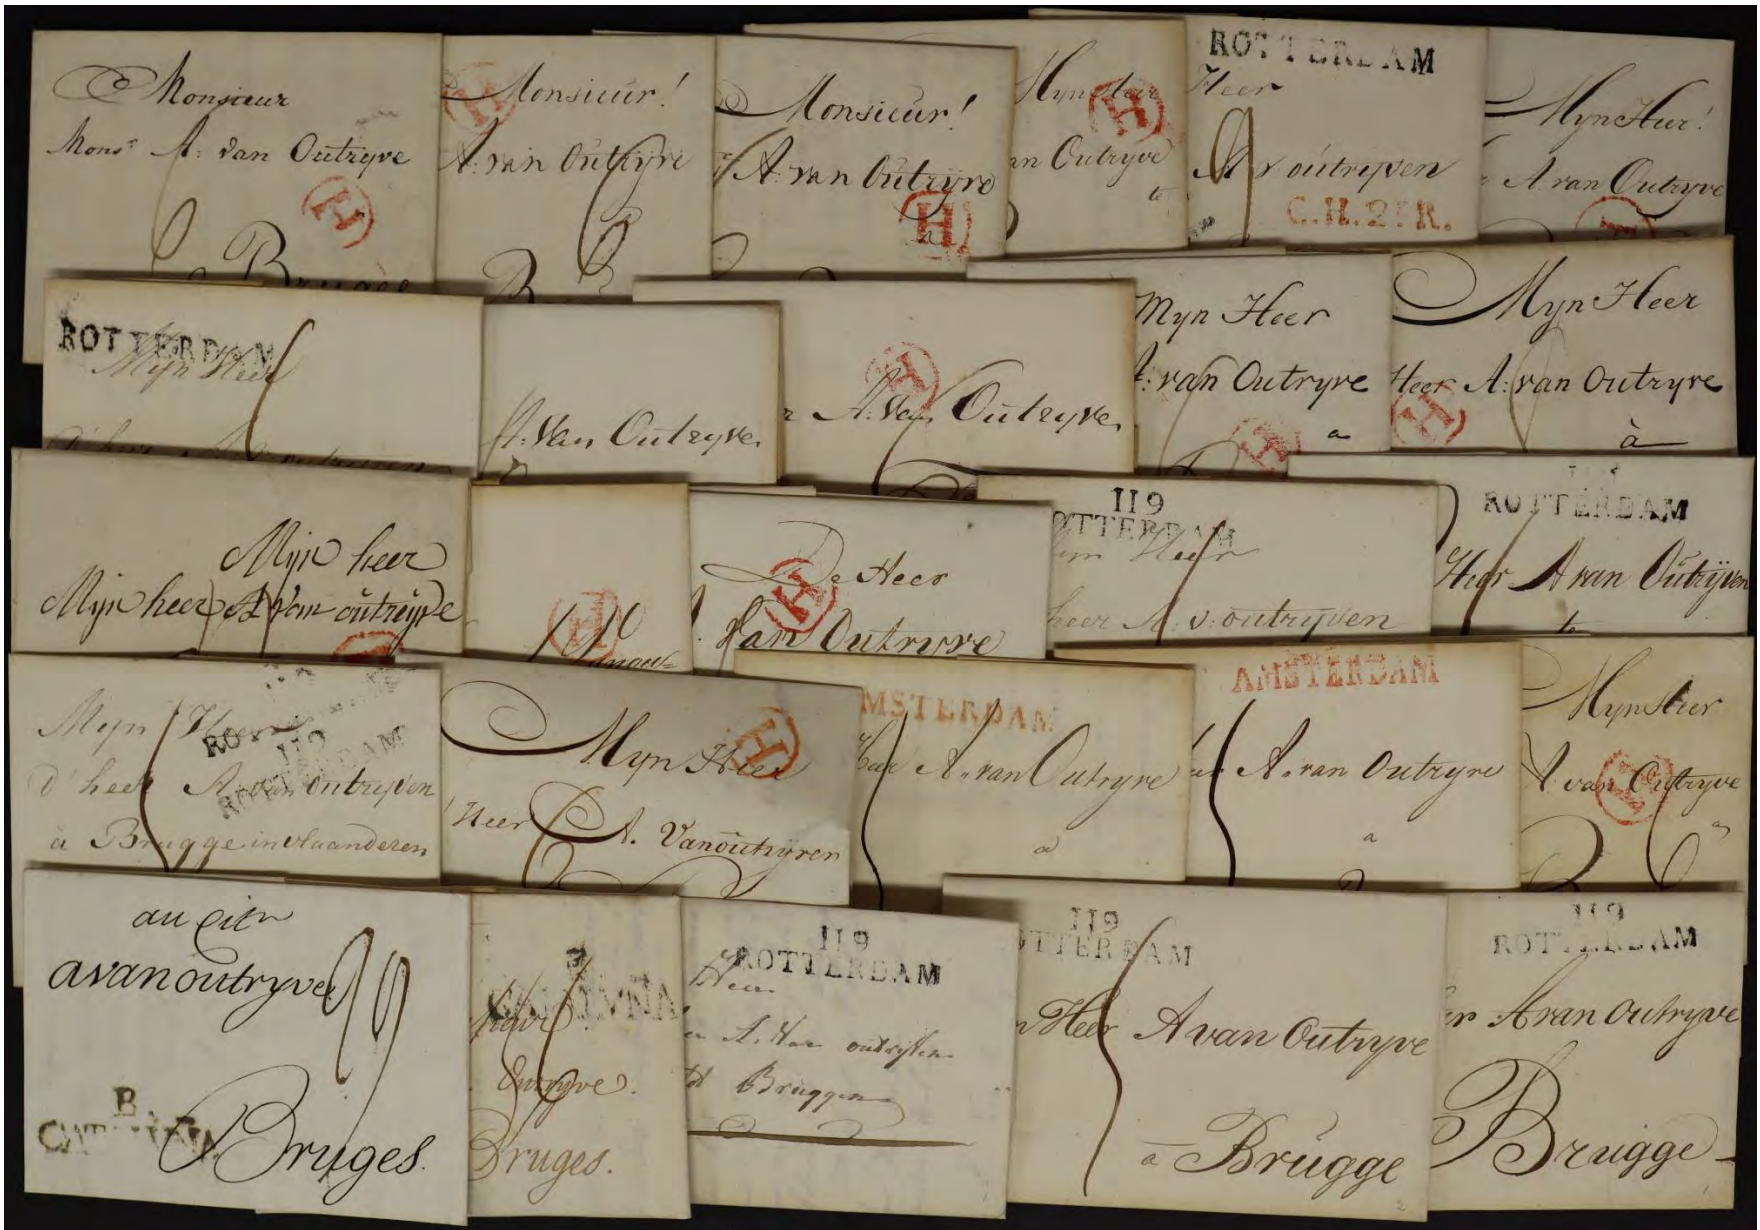 Monsieur
Mons.r A: van Outryve
H
Brugge
H
Monsieur!
A. van Outryve
Monsieur!
A. van Outryve
H
a
Myn Heer
H
an Outryve
te
ROTTERDAM
Heer
A v outrijven
C.H.2e.R.
Myn Heer!
A. van Outryve
ROTTERDAM
Myn Heer
A. Van Outryve
H
A. Van Outryve
Myn Heer
A: van Outryve
H
a
Myn Heer
Heer A: van Outryve
H
à
Mijn heer
Mijn heer A Van outrijve
H
De Heer
H
Van Outryve
119
OTTERDAM
Heer
heer A. v: outrijven
ROTTERDAM
Heer A van Outrijven
te
Myn Heer
119
ROTTERDAM
d'heer A van outrijven
à Brugge in vlaanderen
Myn Heer
H
Heer A. Vanoutryven
MSTERDAM
Heer A. van Outryve
a
AMSTERDAM
A. van Outryve
a
Myn Heer
A. van Outryve
a
au Citn
avanoutryve
B
Bruges.
Outryve.
Bruges.
119
ROTTERDAM
Heer
Bruggen
119
TTERDAM
Heer A van Outryve
a Brugge
119
ROTTERDAM
A van Outryve
Brugge